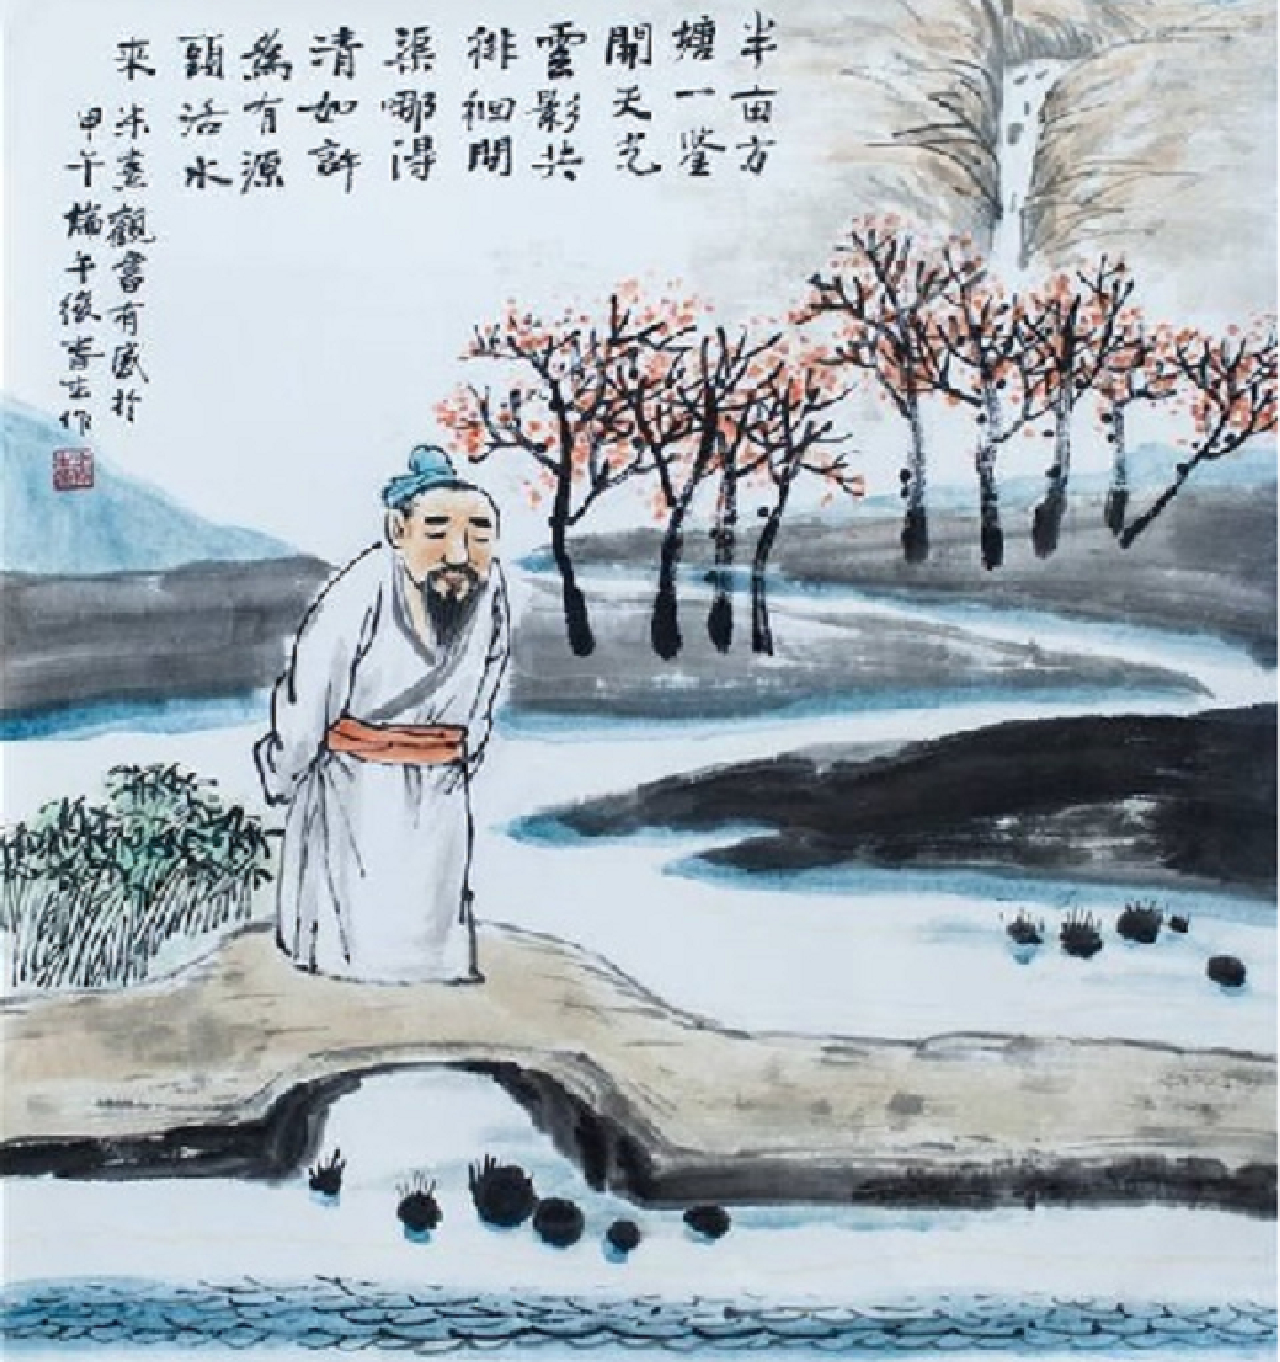 半亩方
塘一鉴
開天光
雲影共
徘徊問
渠哪得
清如許
為有源
頭活水
來
朱熹觀書有感於
甲午端午後
作